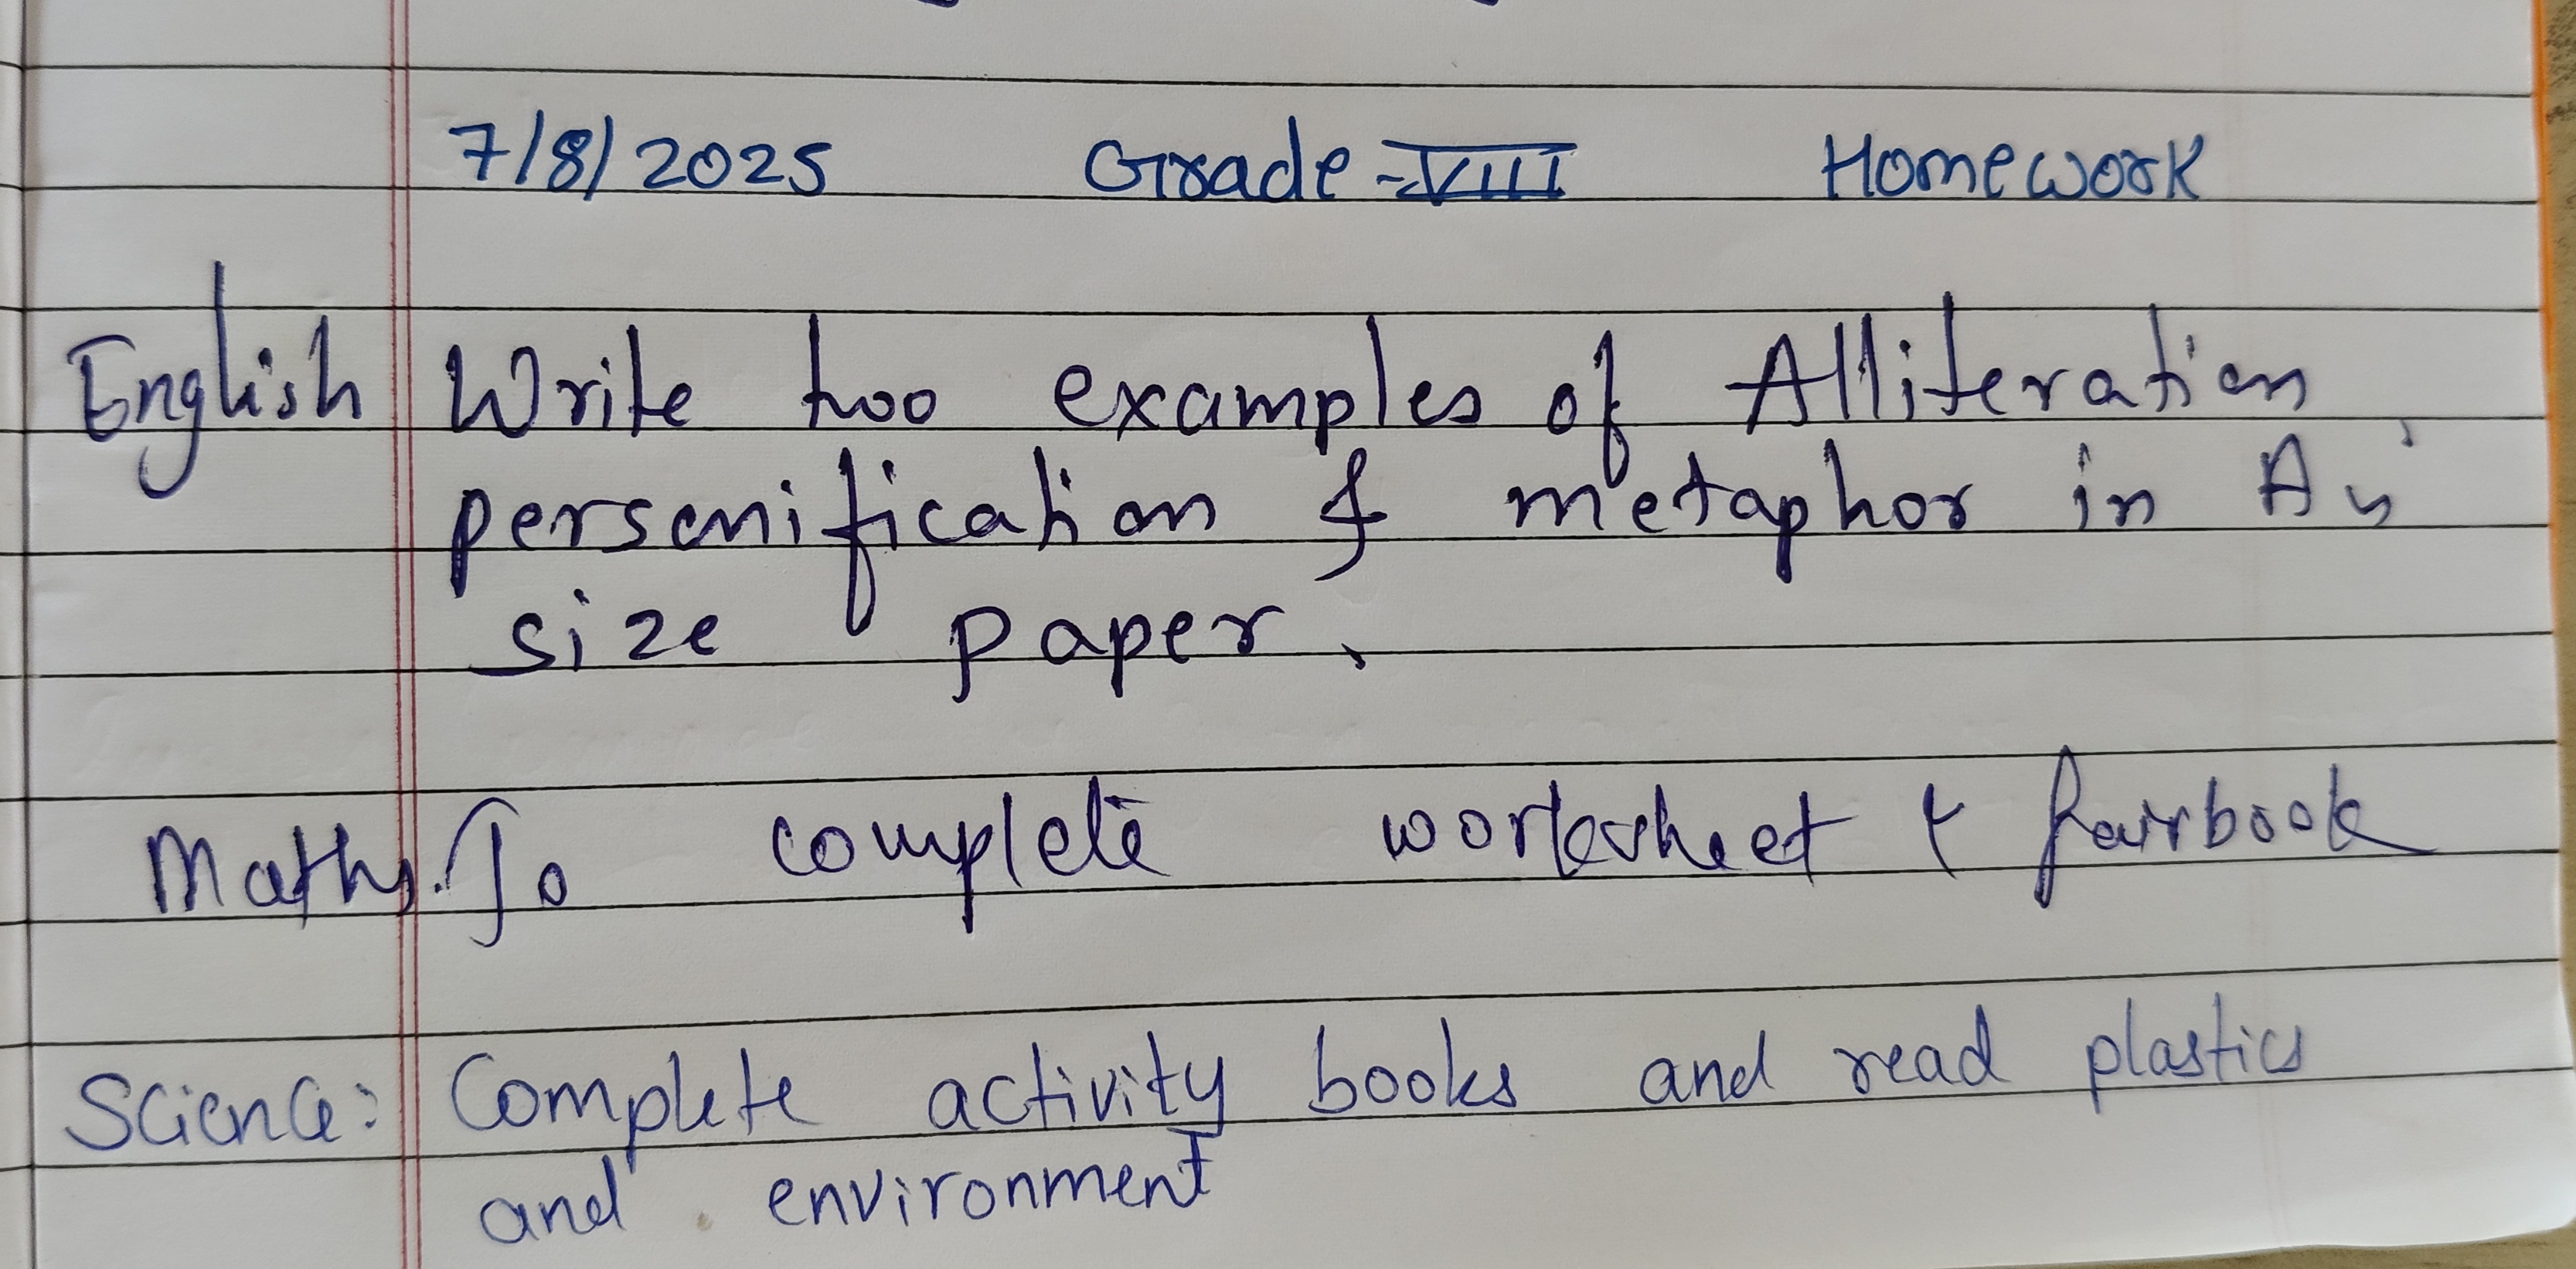 7/8/2025 Grade-VIII Homework
English Write two examples of Alliteration
personification & metaphor in A4
size paper.
Maths. To complete worksheet & fairbook
Science: Complete activity books and read plastics
and environment